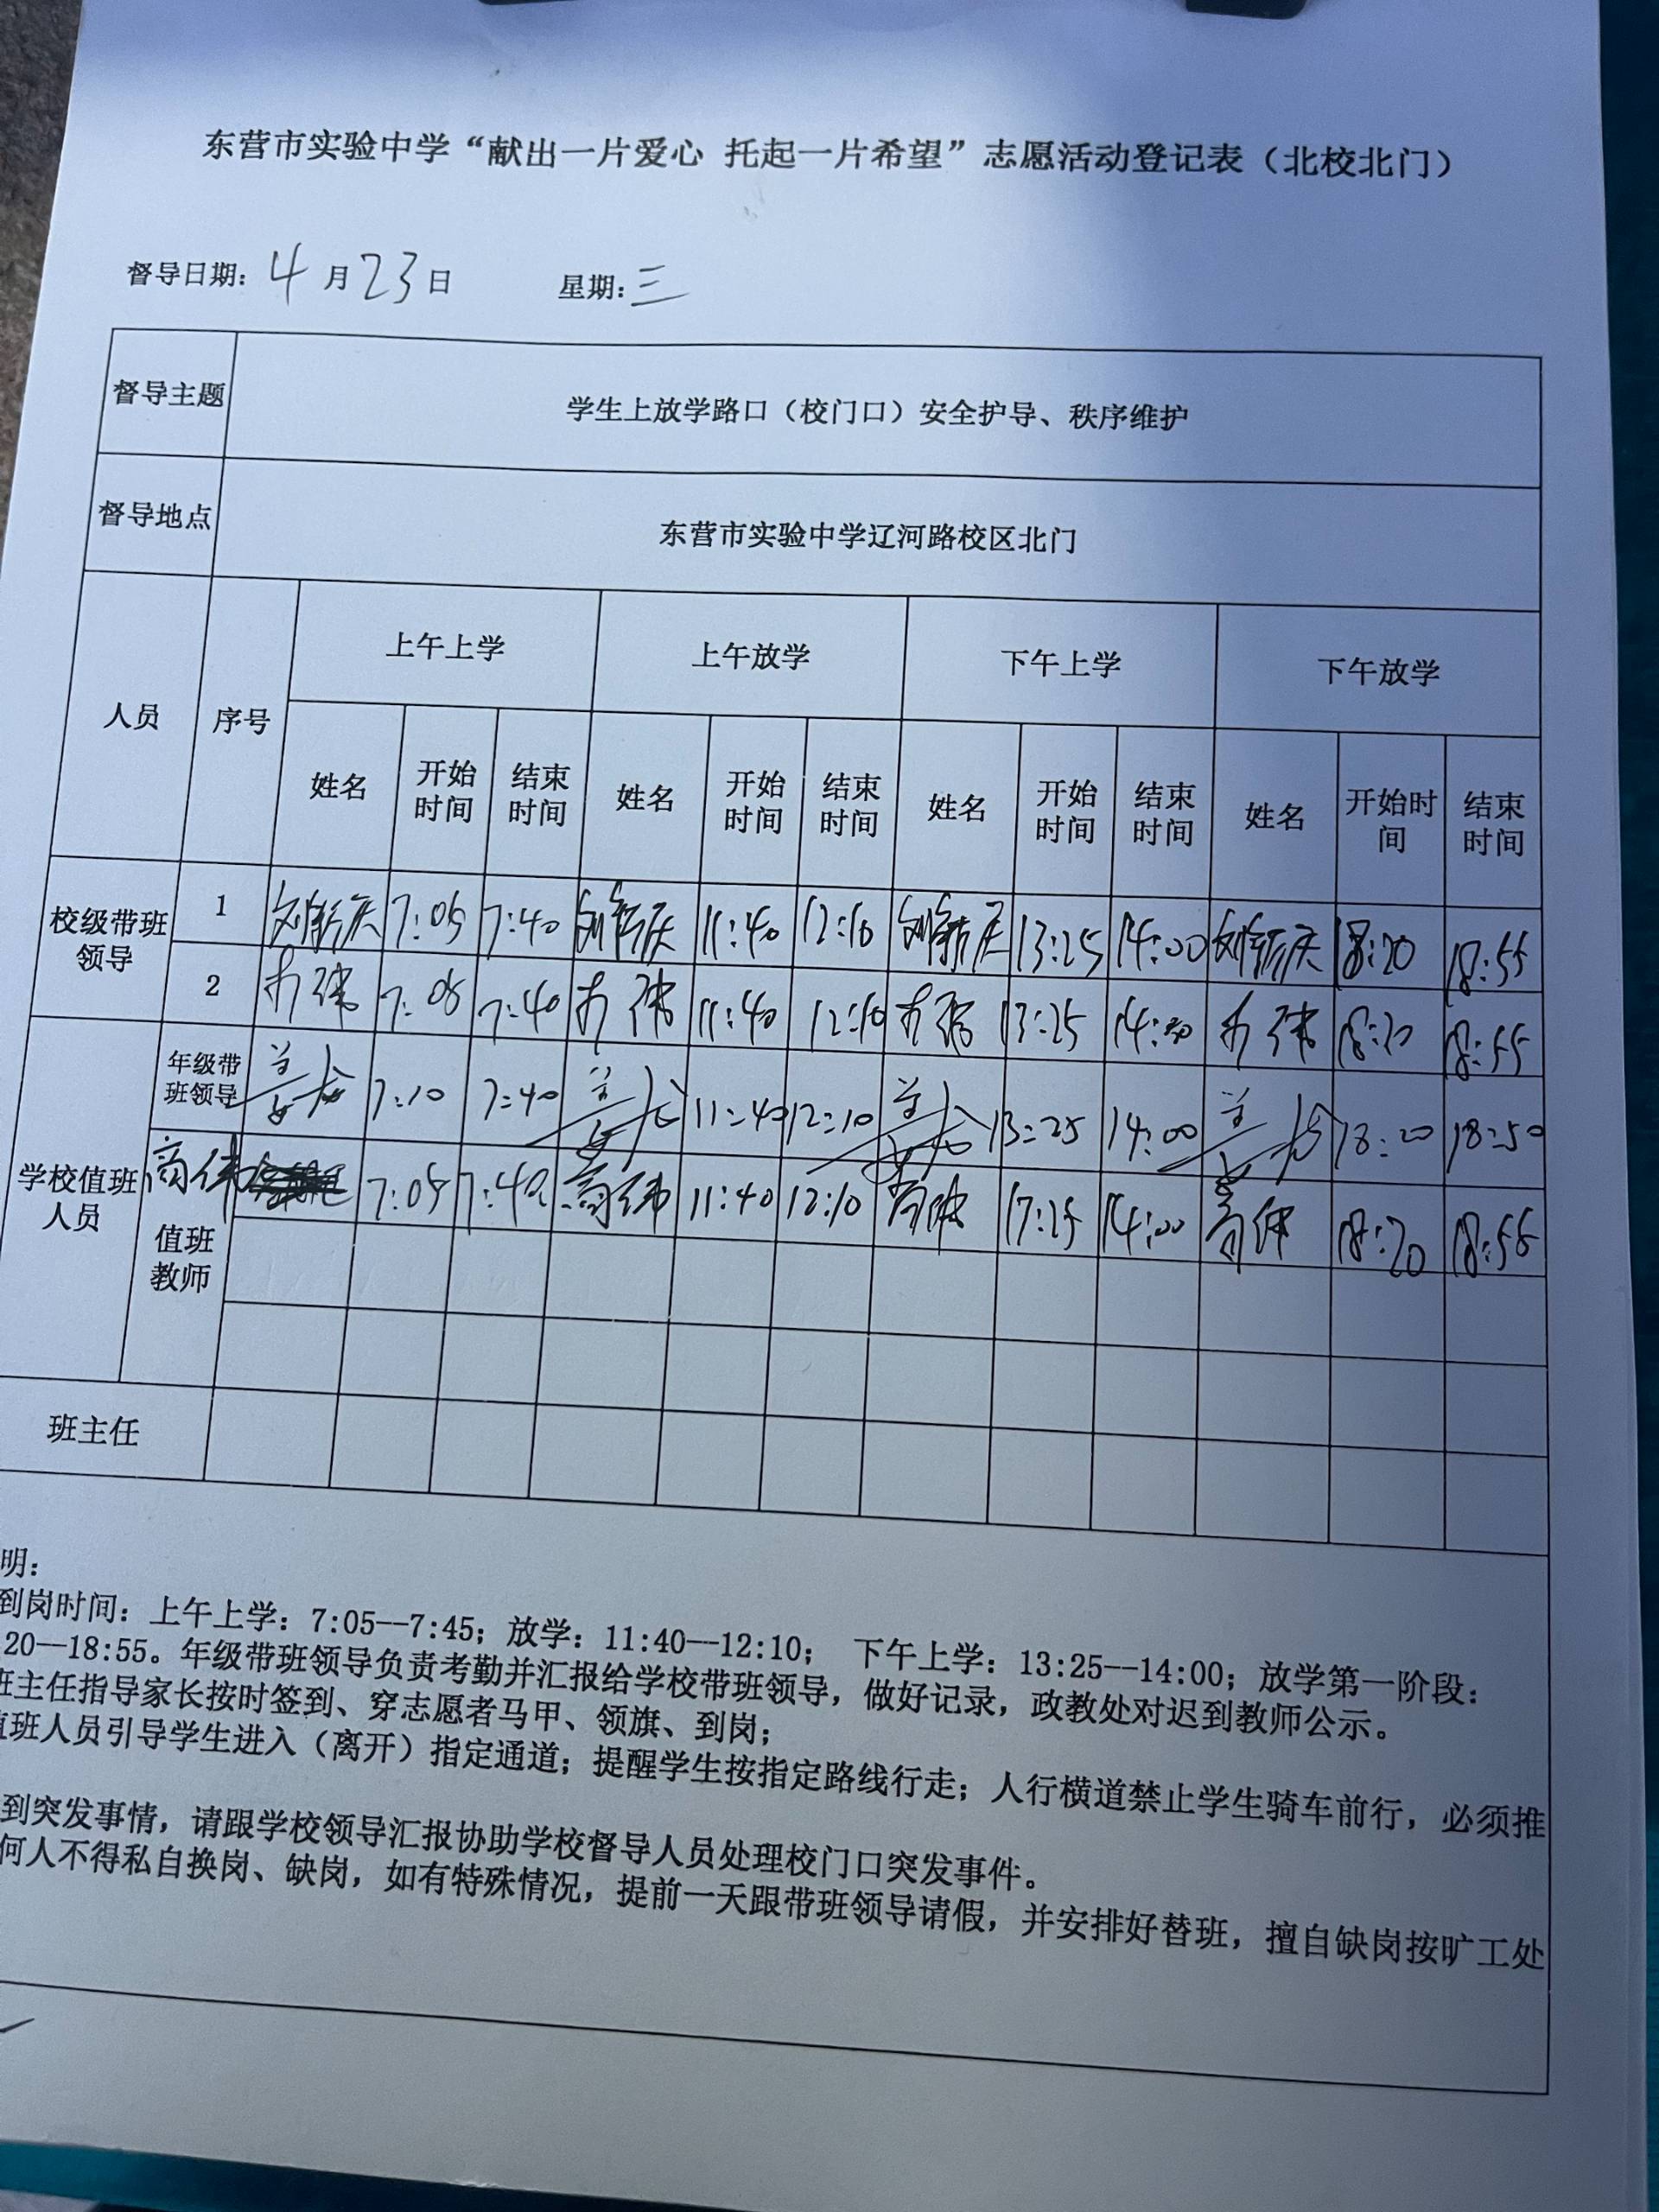 东营市实验中学“献出一片爱心 托起一片希望”志愿活动登记表（北校北门）
督导日期：4月23日 星期：三
督导主题 学生上放学路口（校门口）安全护导、秩序维护
督导地点 东营市实验中学辽河路校区北门
人员 序号 上午上学 上午放学 下午上学 下午放学
姓名 开始时间 结束时间 姓名 开始时间 结束时间 姓名 开始时间 结束时间 姓名 开始时间 结束时间
校级带班领导 1 7:05 7:40 11:40 12:10 13:25 14:00 18:20 18:55
2 7:05 7:40 11:40 12:10 13:25 14:00 18:20 18:55
学校值班人员 年级带班领导 7:10 7:40 11:40 12:10 13:25 14:00 18:20 18:50
值班教师 商伟 7:05 7:40 商伟 11:40 12:10 商伟 17:25 14:00 商伟 18:20 18:55
班主任
明：
到岗时间：上午上学：7:05--7:45；放学：11:40--12:10； 下午上学：13:25--14:00；放学第一阶段：
20--18:55。年级带班领导负责考勤并汇报给学校带班领导，做好记录，政教处对迟到教师公示。
班主任指导家长按时签到、穿志愿者马甲、领旗、到岗；
值班人员引导学生进入（离开）指定通道；提醒学生按指定路线行走；人行横道禁止学生骑车前行，必须推
到突发事情，请跟学校领导汇报协助学校督导人员处理校门口突发事件。
何人不得私自换岗、缺岗，如有特殊情况，提前一天跟带班领导请假，并安排好替班，擅自缺岗按旷工处